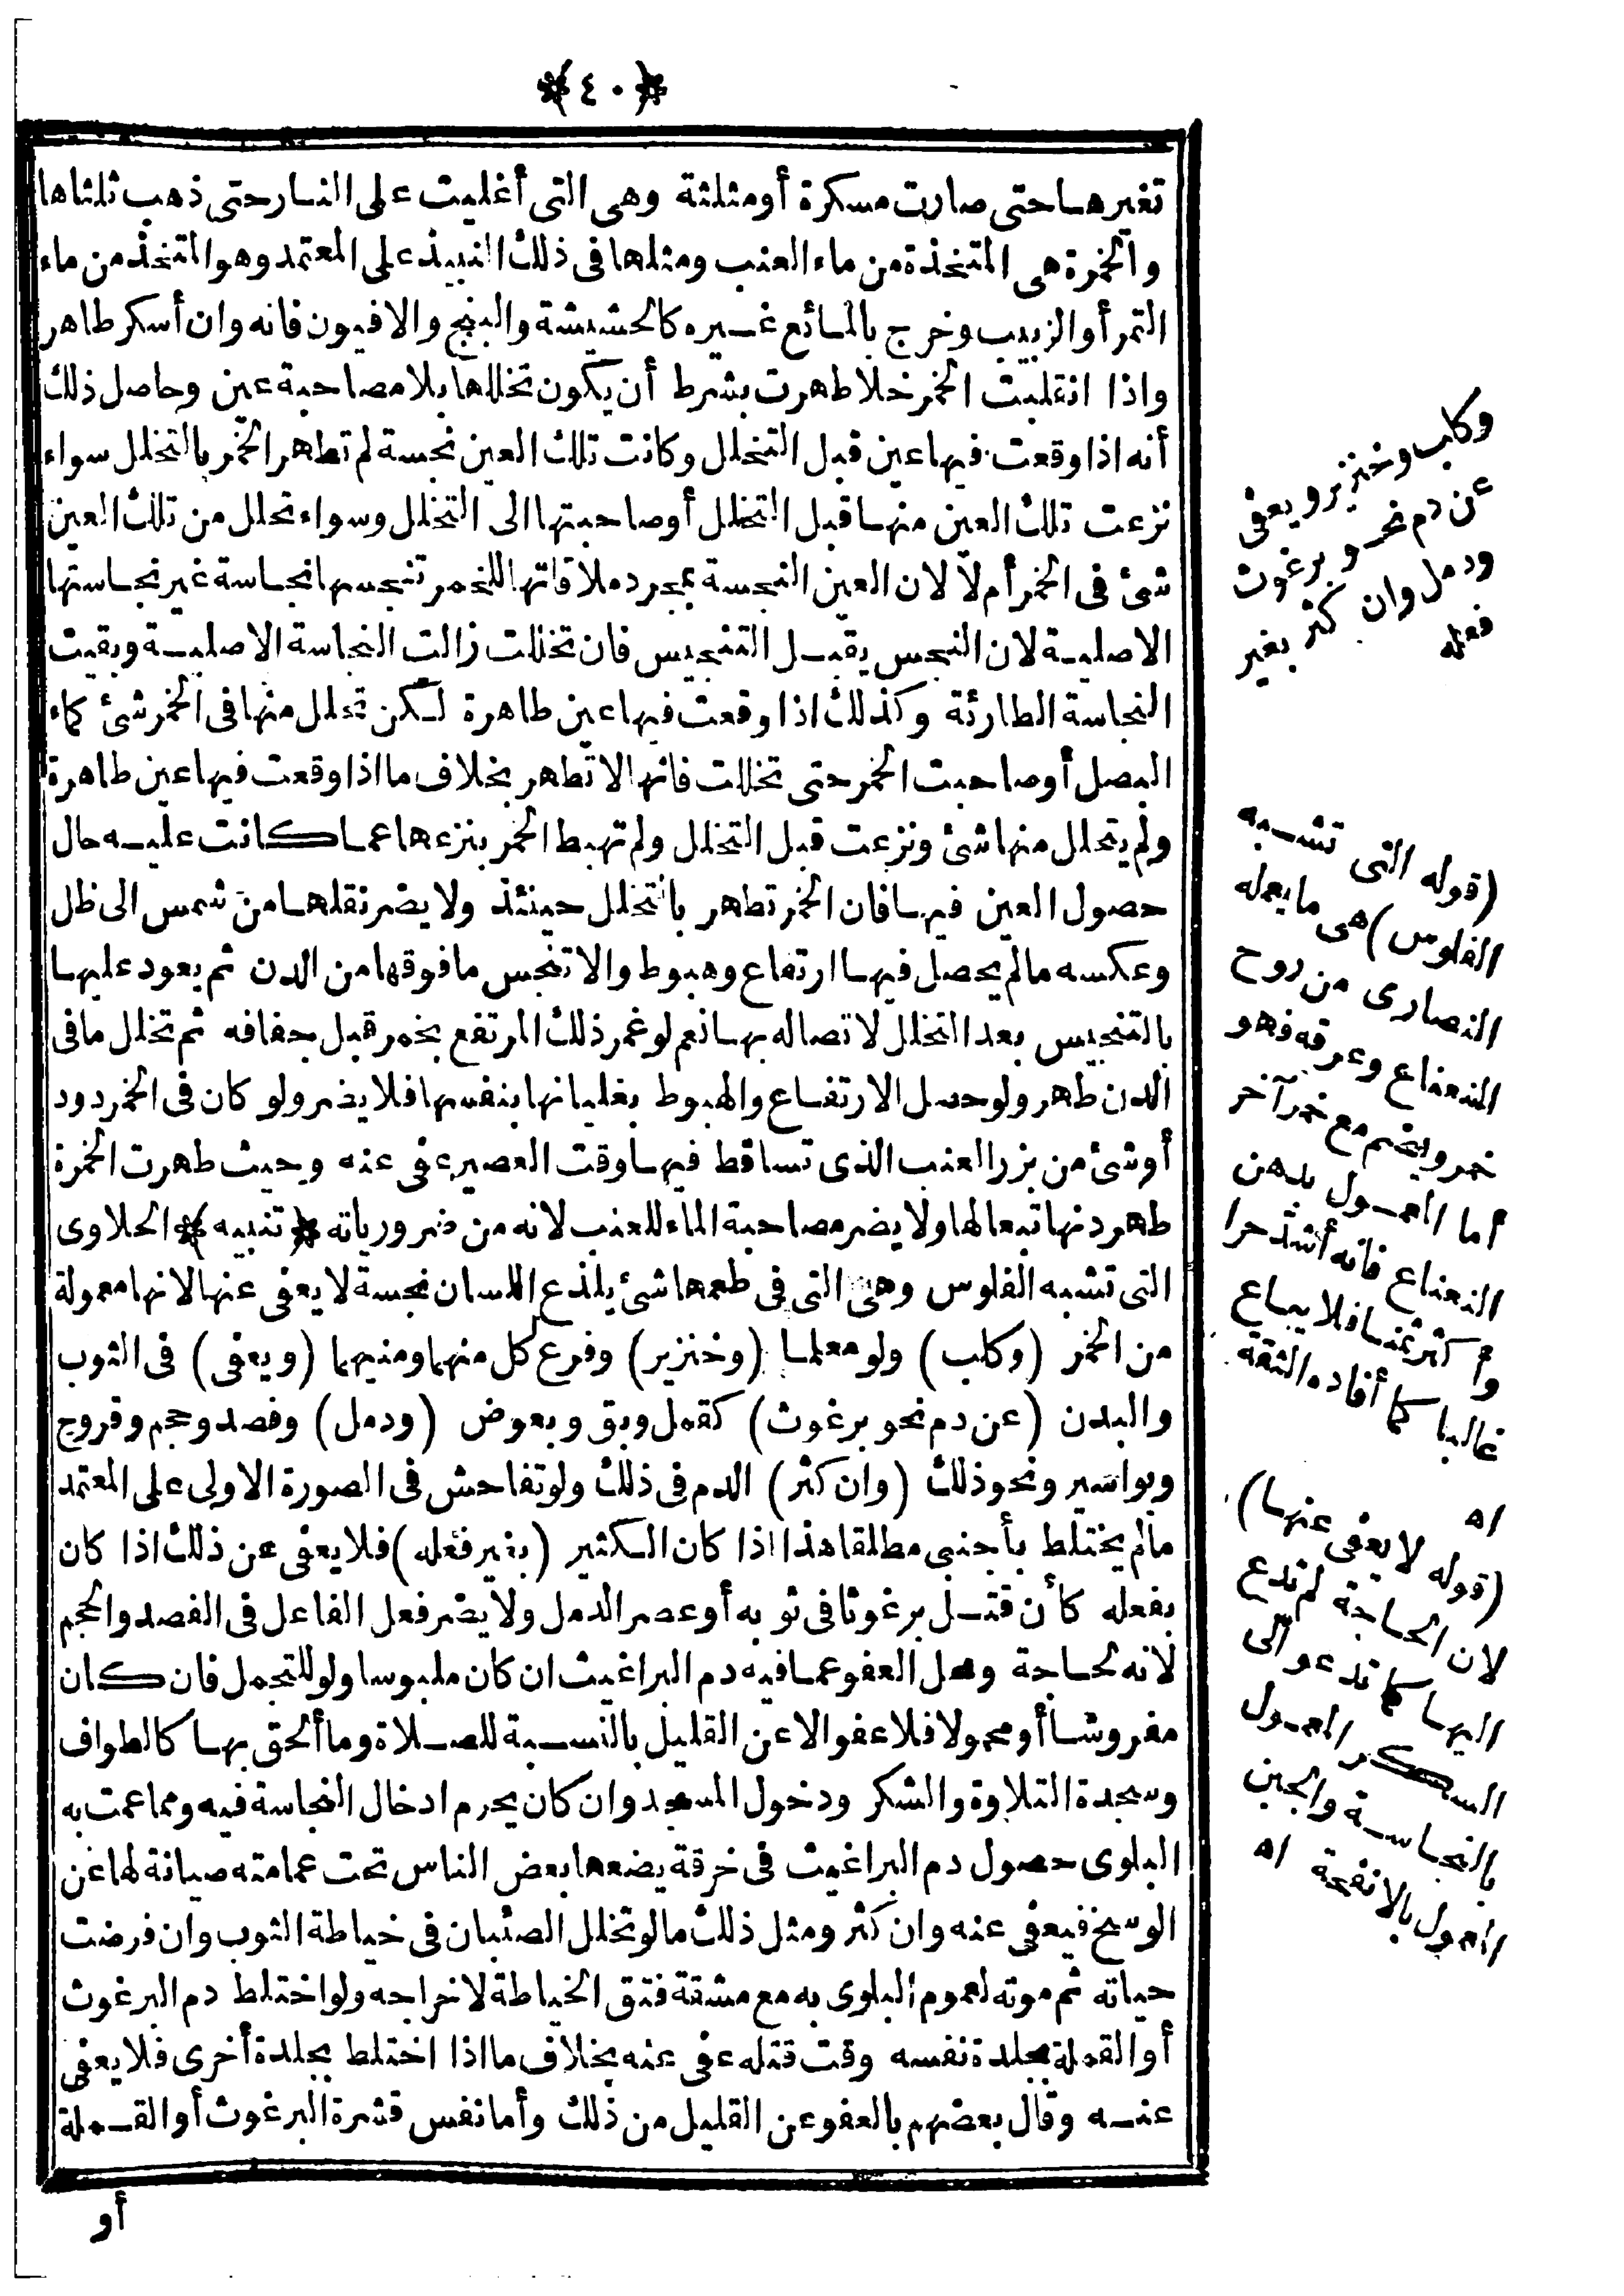 ﴿٤٠﴾
تغيرها حتى صارت مسكرة أو مثلثة وهى التى أغليت على النار حتى ذهب ثلثاها
والخمرة هى المتخذة من ماء العنب ومثلها فى ذلك النبيذ على المعتمد وهو المتخذ من ماء
التمر أو الزبيب وخرج بالمائع غيره كالحشيشة والبنج والافيون فانه وان أسكر طاهر
واذا انقلبت الخمر خلا طهرت بشرط أن يكون تخللها بلا مصاحبة عين وحاصل ذلك
أنه اذا وقعت فيها عين قبل التخلل وكانت تلك العين نجسة لم تطهر الخمر بالتخلل سواء
نزعت تلك العين منها قبل التخلل أو صاحبتها الى التخلل وسواء تحلل من تلك العين
شئ فى الخمر أم لا لان العين النجسة بمجرد ملاقاتها للخمر تنجسها نجاسة غير نجاستها
الاصلية لان النجس يقبل التنجيس فان تخللت زالت النجاسة الاصلية وبقيت
النجاسة الطارئة وكذلك اذا وقعت فيها عين طاهرة لكن تحلل منها فى الخمر شئ كماء
البصل أو صاحبت الخمر حتى تخللت فانها لا تطهر بخلاف ما اذا وقعت فيها عين طاهرة
ولم يتحلل منها شئ ونزعت قبل التخلل ولم تهبط الخمر بنزعها عما كانت عليه حال
حصول العين فيها فان الخمر تطهر بالتخلل حينئذ ولا يضر نقلها من شمس الى ظل
وعكسه ما لم يحصل فيها ارتفاع وهبوط والا تنجس ما فوقها من الدن ثم يعود عليها
بالتنجيس بعد التخلل لاتصاله بها نعم لو غمر ذلك المرتفع بخمر قبل جفافه ثم تخلل ما فى
الدن طهر ولو حصل الارتفاع والهبوط بغليانها بنفسها فلا يضر ولو كان فى الخمر دود
أو شئ من بزر العنب الذى تساقط فيها وقت العصير عفى عنه وحيث طهرت الخمرة
طهر دنها تبعا لها ولا يضر مصاحبة الماء للعنب لانه من ضرورياته ﴿تنبيه﴾ الحلاوى
التى تشبه الفلوس وهى التى فى طعمها شئ يلذع اللسان نجسة لا يعفى عنها لانها معمولة
من الخمر (وكلب) ولو معلما (وخنزير) وفرع كل منهما ومنيهما (ويعفى) فى الثوب
والبدن (عن دم نحو برغوث) كقمل وبق وبعوض (ودمل) وفصد وحجم وقروح
وبواسير ونحو ذلك (وان كثر) الدم فى ذلك ولو تفاحش فى الصورة الاولى على المعتمد
ما لم يختلط بأجنبى مطلقا هذا اذا كان الكثير (بغير فعله) فلا يعفى عن ذلك اذا كان
بفعله كأن قتل برغوثا فى ثوبه أو عصر الدمل ولا يضر فعل الفاعل فى الفصد والحجم
لانه لحاجة ومحل العفو عما فيه دم البراغيث ان كان ملبوسا ولو للتجمل فان كان
مفروشا أو محمولا فلا عفو الا عن القليل بالنسبة للصلاة وما ألحق بها كالطواف
وسجدة التلاوة والشكر ودخول المسجد وان كان يحرم ادخال النجاسة فيه ومما عمت به
البلوى حصول دم البراغيث فى خرقة يضعها بعض الناس تحت عمامته صيانة لها عن
الوسخ فيعفى عنه وان كثر ومثل ذلك ما لو تخلل الصئبان فى خياطة الثوب وان فرضت
حياته ثم موته لعموم البلوى به مع مشقة فتق الخياطة لاخراجه ولو اختلط دم البرغوث
أو القملة بجلدة نفسه وقت قتله عفى عنه بخلاف ما اذا اختلط بجلدة أخرى فلا يعفى
عنه وقال بعضهم بالعفو عن القليل من ذلك وأما نفس قشرة البرغوث أو القملة
أو
وكلب وخنزير ويعفى
عن دم نحو برغوث
ودمل وان كثر بغير
فعله
(قوله التى تشبه
الفلوس) هى ما يعمله
النصارى من روح
النعناع وعرقه فهو
خمر ويضم مع خمر آخر
أما المعمول بدهن
النعناع فانه أشد حرا
وأكثر ثمنا فلا يباع
غالبا كما أفاده الثقة
اه
(قوله لا يعفى عنها)
لان الحاجة لم تدع
اليها كما تدعو الى
السكر المعمول
بالنجاسة والجبن
المعمول بالانفحة اه